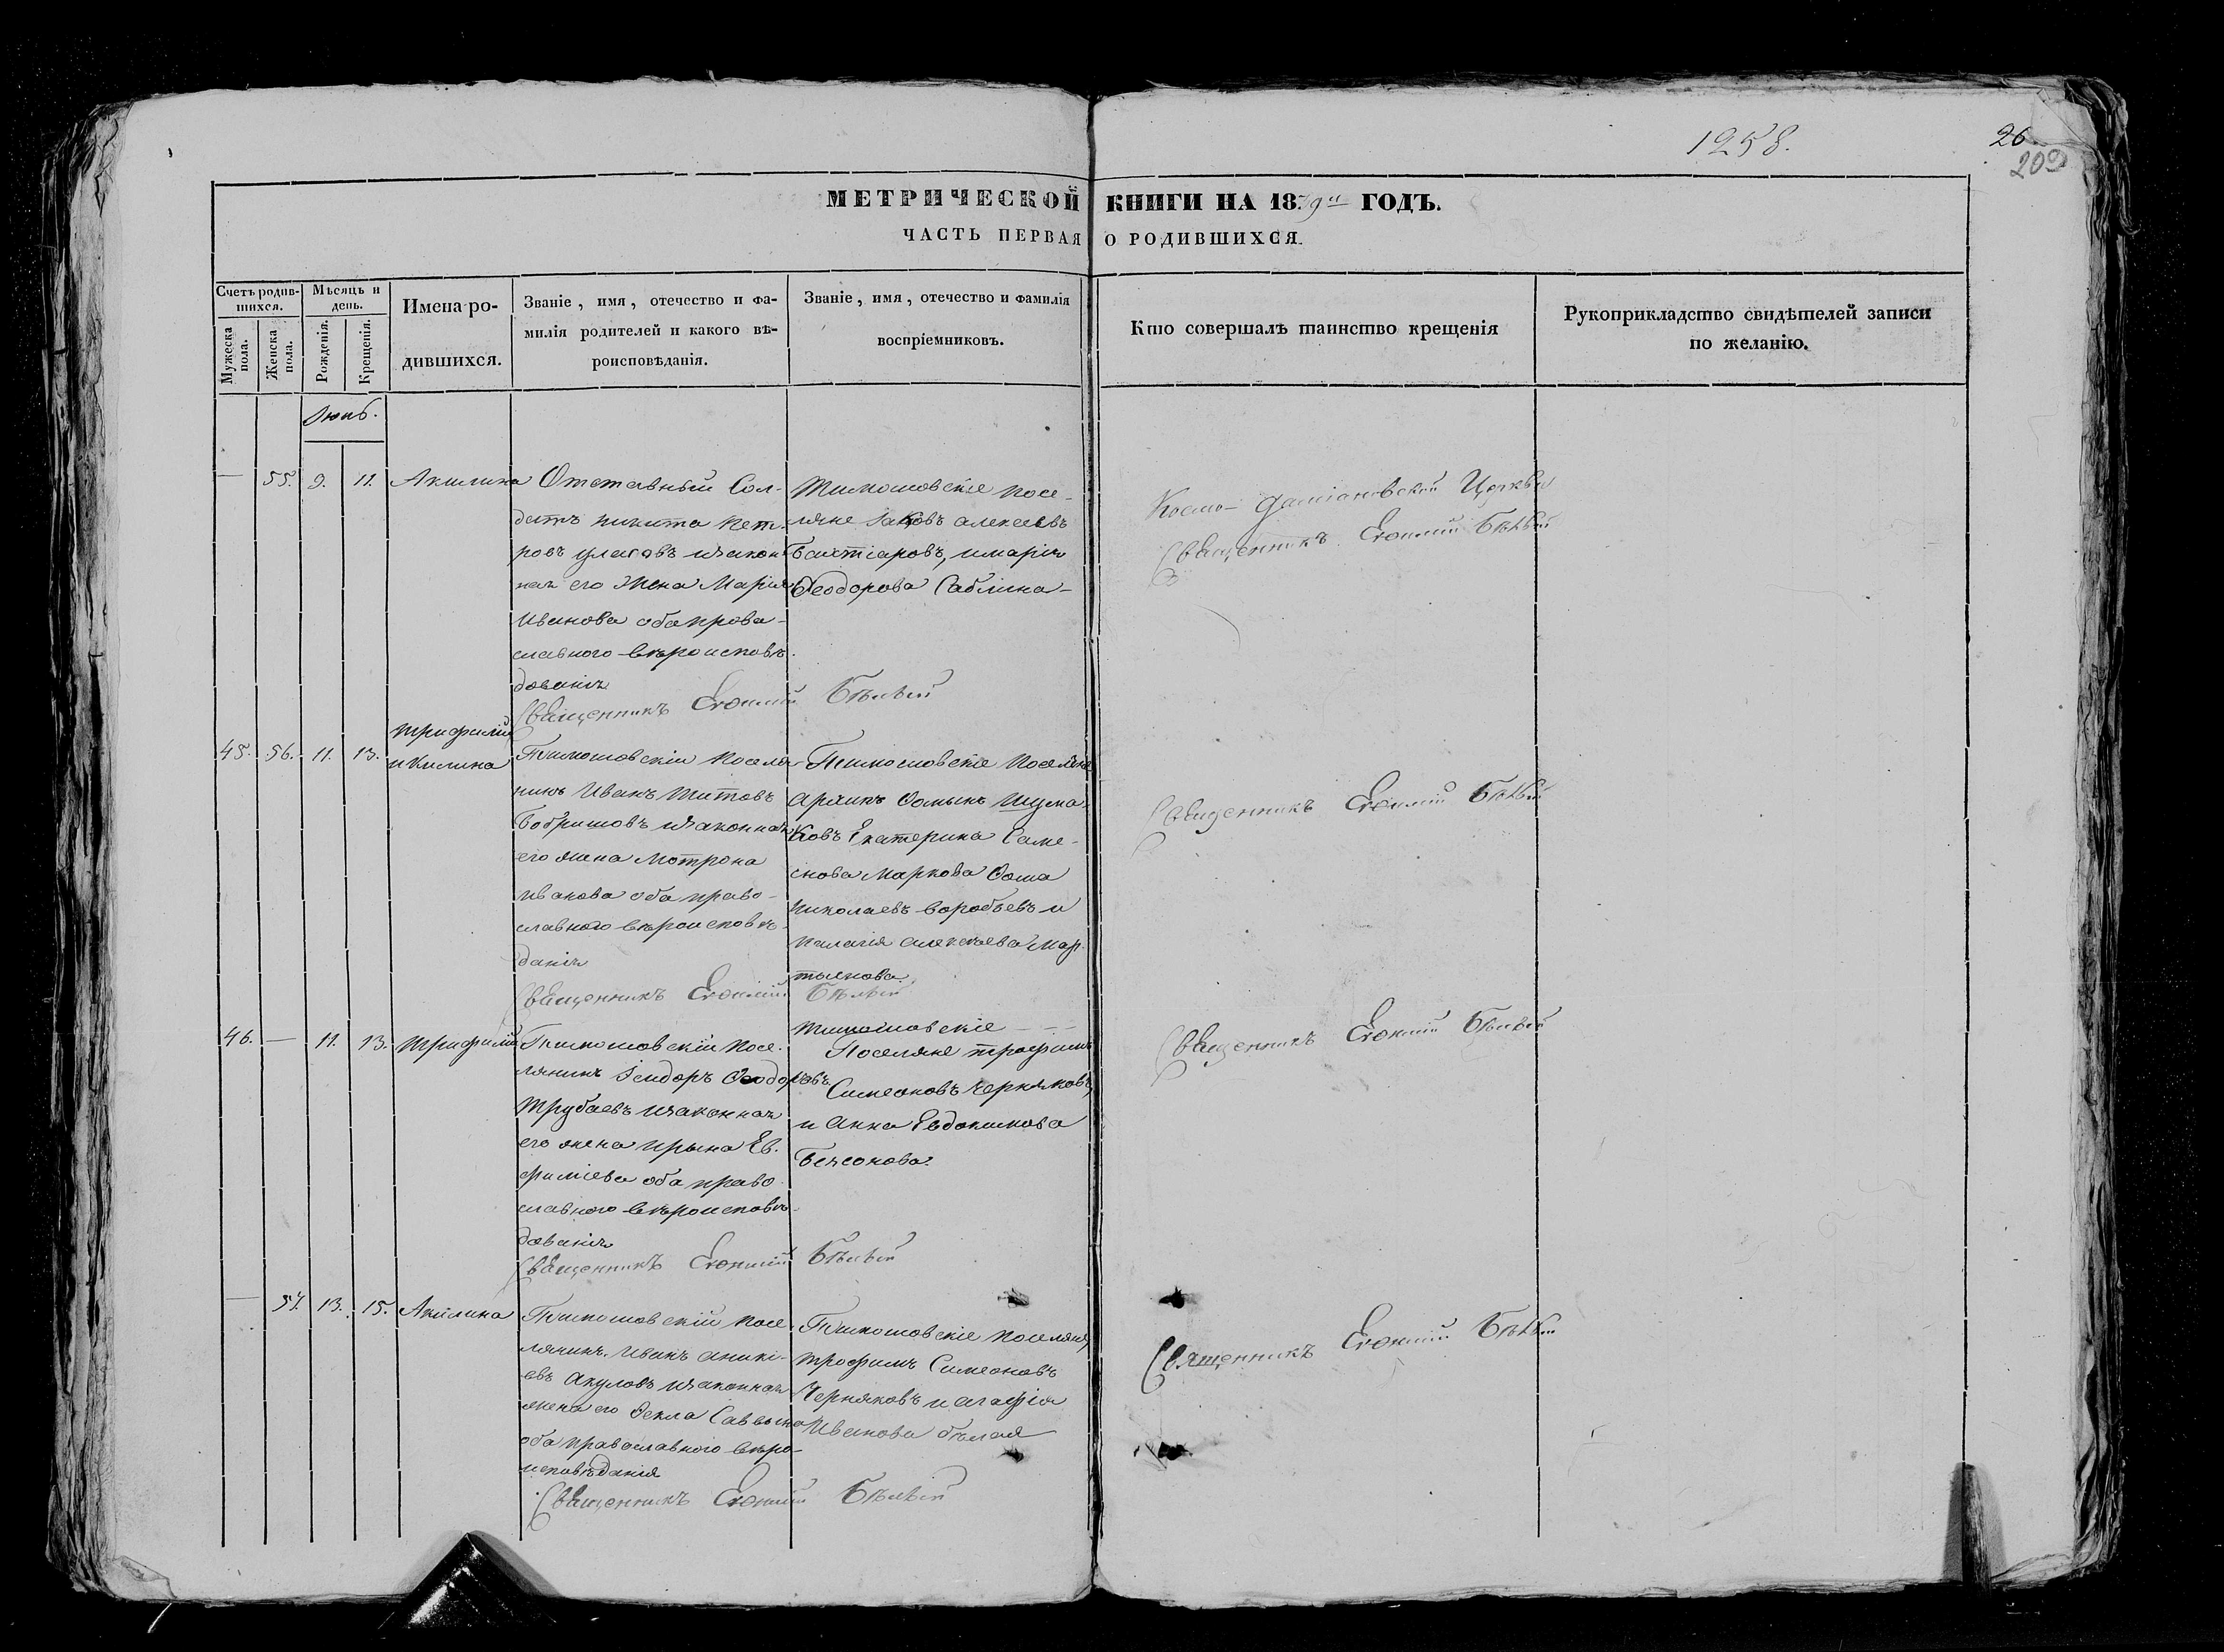 1258.
26
209
МЕТРИЧЕСКОЙ КНИГИ НА 1839й ГОДЪ.
ЧАСТЬ ПЕРВАЯ О РОДИВШИХСЯ.
Счетъ родив-
шихся.
Мужеска пола.
Женска пола.
Мѣсяць и
день.
Рожденія.
Крещенія.
Имена ро-
дившихся.
Званіе, имя, отечество и фа-
милія родителей и какого вѣ-
роисповѣданія.
Званіе, имя, отечество и фамилія
воспріемниковъ.
Кто совершалъ таинство крещенія
Рукоприкладство свидѣтелей записи
по желанію.
— 55. 9. 11. Акилина
Отставный Сол-
датъ никита пет-
ровъ изакон
ная его жена Марія
Иванова оба права-
славного вѣроисповѣ-
дованія
Священникъ Евѳимій Бѣлый
Тимошовскіе посе-
ляне Іаковъ алексѣевъ
Бахтіаровъ, имарія
Ѳеодорова Саблина
Космо-Даміановской Церкви
Священникъ Евѳимій Бѣлый
45. 56. 11. 13. трифилій
икилина
Тимошовскій поселя-
нинъ Иванъ титовъ
Бобришовъ изаконная
его жена мотрона
иванова оба право-
славного вѣроисповѣ-
данія
Священникъ Евѳимій Бѣлый
Тимошовскіе Поселяне
Шума-
ковъ Екатерина Саме-
нова маркова Ѳома
николаевъ воробъевъ и
палагія алексѣева мар-
тынова
Священникъ Евѳимій Бѣлый
46. — 11. 13. трифилій
Тимошовскій посе-
лянинъ Ѳеодоровъ
трубаевъ изаконная
его жена ирына Ев-
фиміева оба право
славного вѣроисповѣ-
дованія
Священникъ Евѳимій Бѣлый
тимошовскіе
Поселяне трофимъ
Симеоновъ черняковъ,
и анна Евдокимова
Безсонова.
Священникъ Евѳимій Бѣлый
— 57. 13. 15. Акилина
Тимошовскій посе-
лянинъ. Иванъ аники-
евъ акуловъ изаконная
жена его Ѳекла Саввына
оба православного вѣро-
исповѣданія
Священникъ Евѳимій Бѣлый
Тимошовскіе поселяне,
трофимъ Симеоновъ
Черняковъ и агафія
Иванова бѣлая
Священникъ Евѳимій Бѣлый